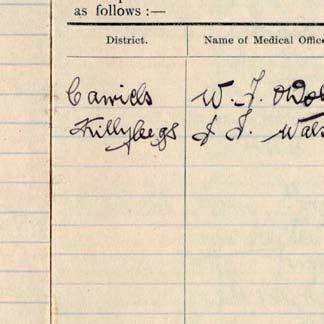 as follows :—
District. Name of Medical Offic
Carricks W. F. O'Do
Killybegs J. J. Wals